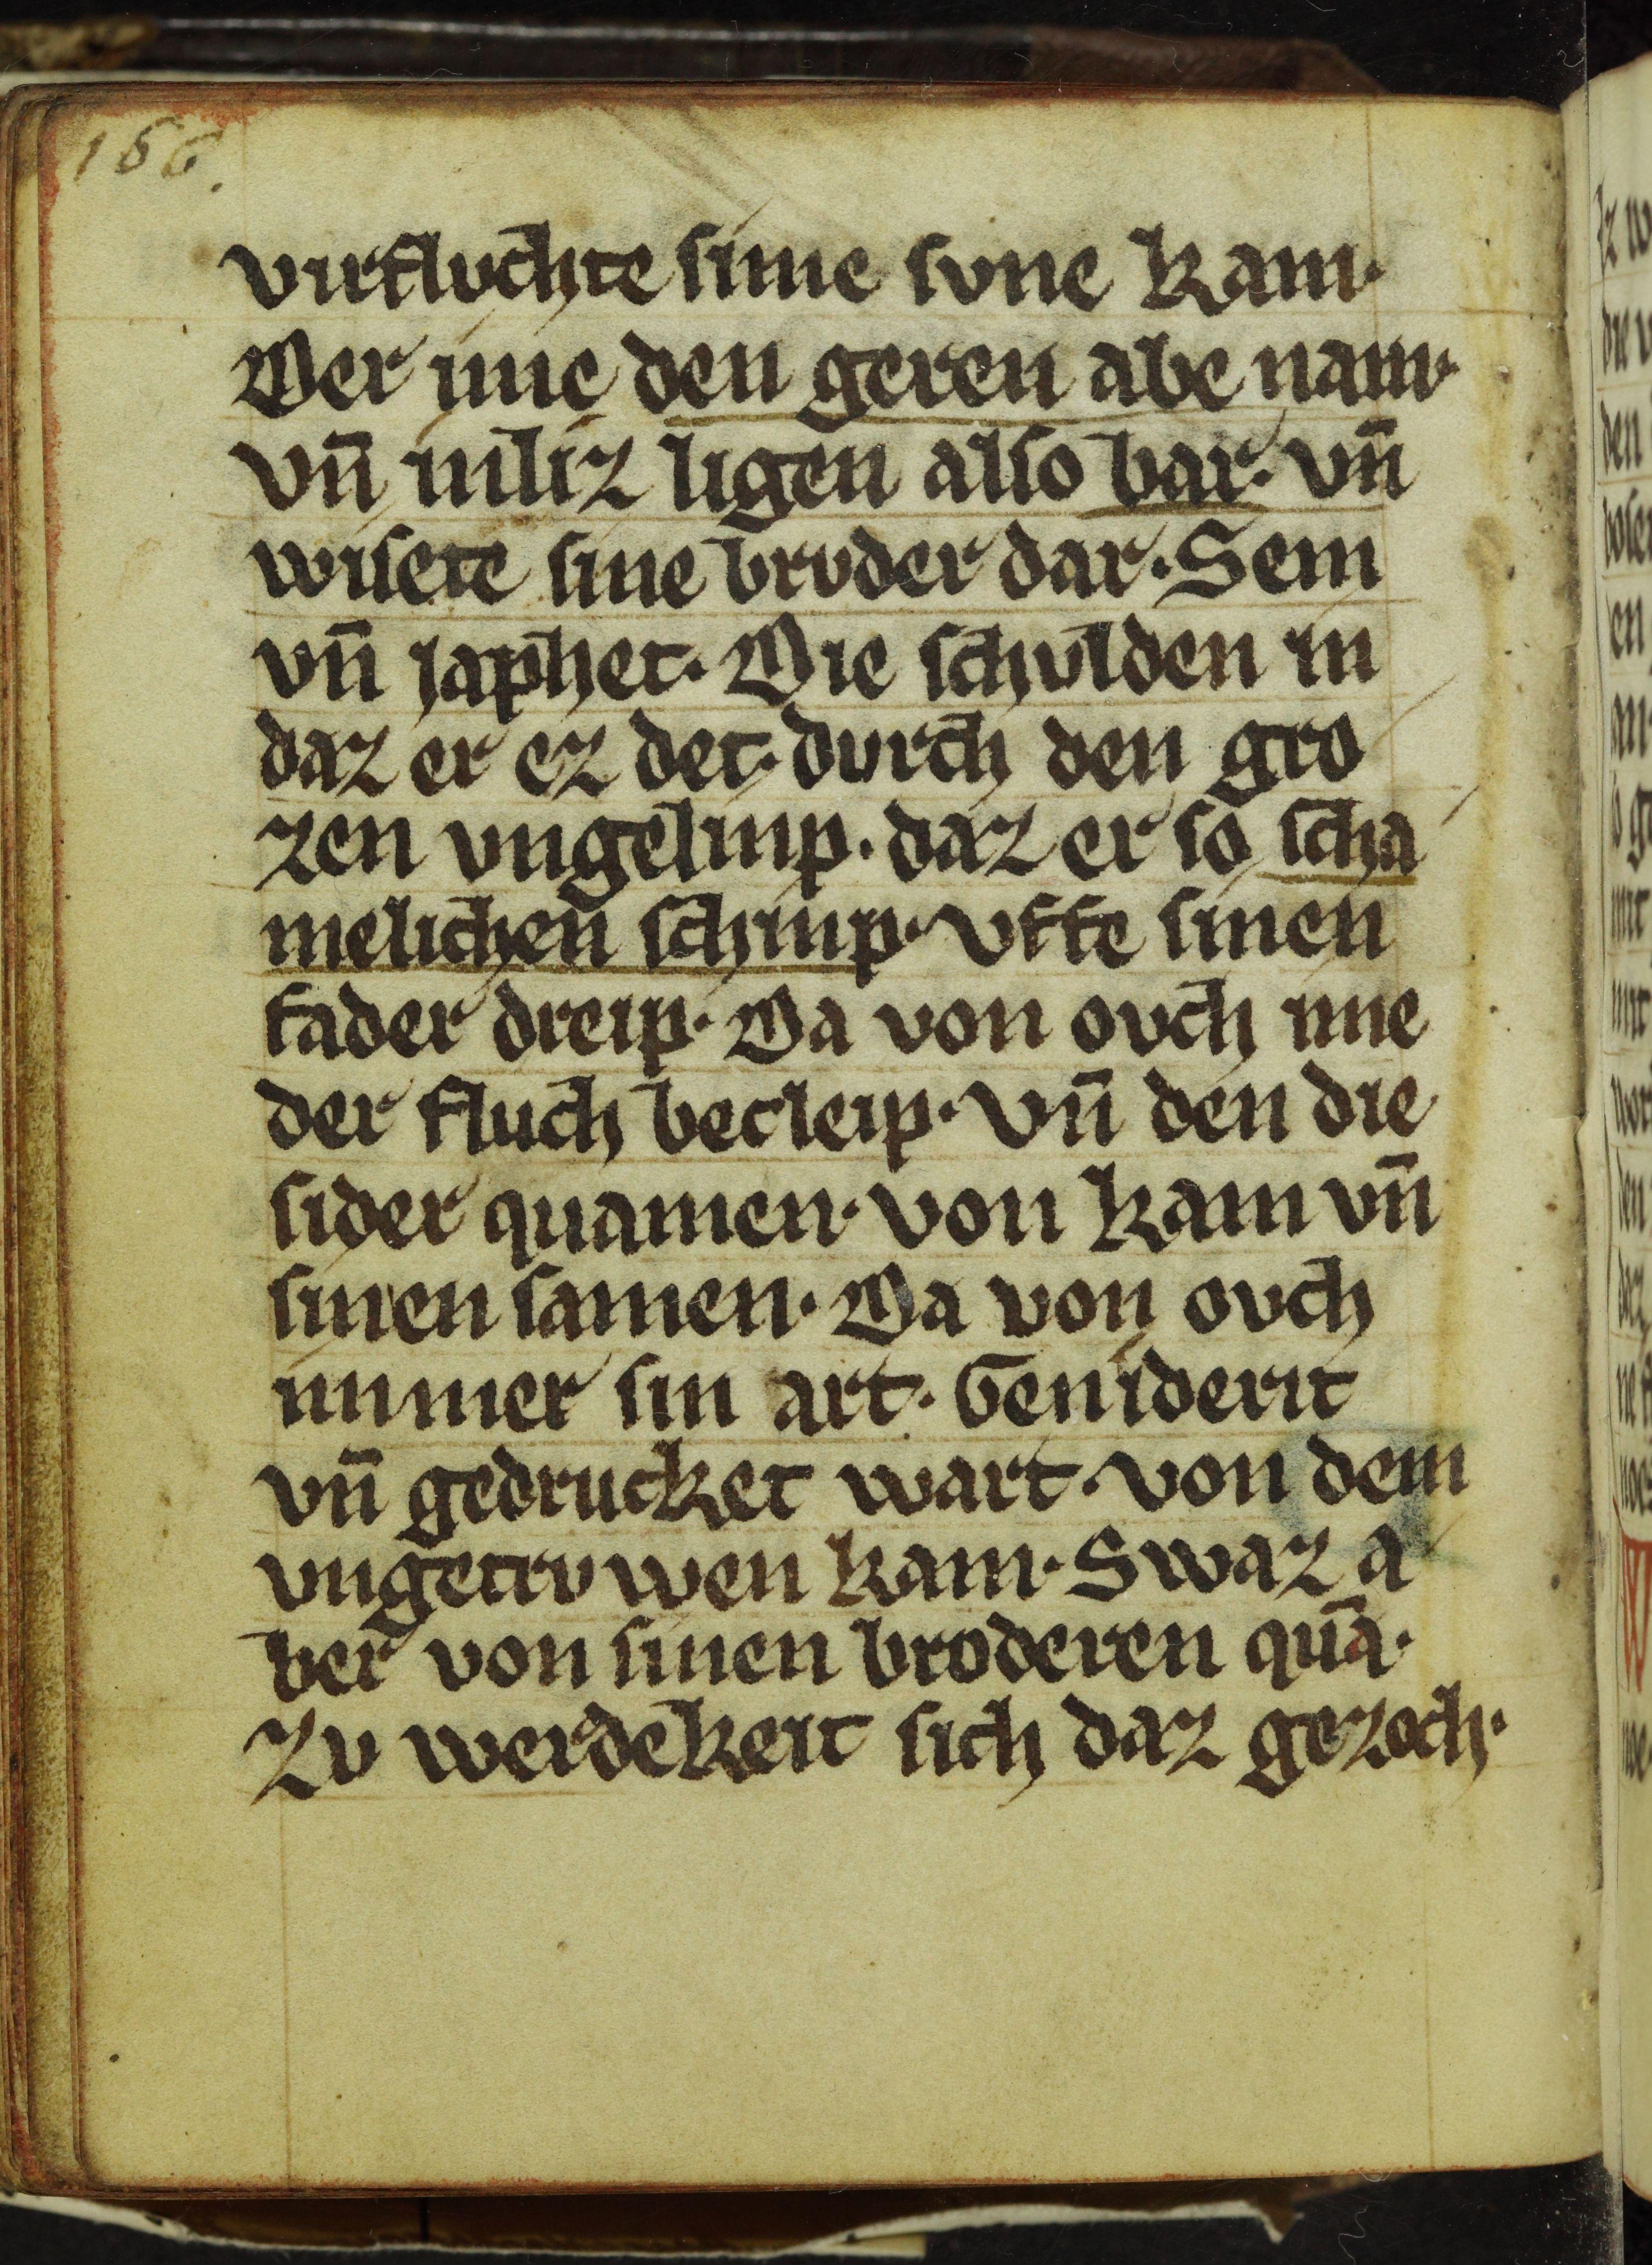 156.
virfluchte sime svne kam·
Der ime den geren abe nam·
vn̄ in liz ligen also bar· vn̄
wisete sine brvder dar· Sem
vn̄ iaphet· Die schvlden in
daz er ez det· durch den gro
zen vngelimp· daz er so scha
melichen schimp· vffe sinen
fader dreip· Da von ovch ime
der fluch becleip· vn̄ den die
sider quamen· von kam vn̄
sinen samen· Da von ovch
immer sin art· Geniderit
vn̄ gedrucket wart· von dem
vngetrvwen kam· Swaz a
ber von sinen broderen quā·
Zv werdekeit sich daz gezoch·